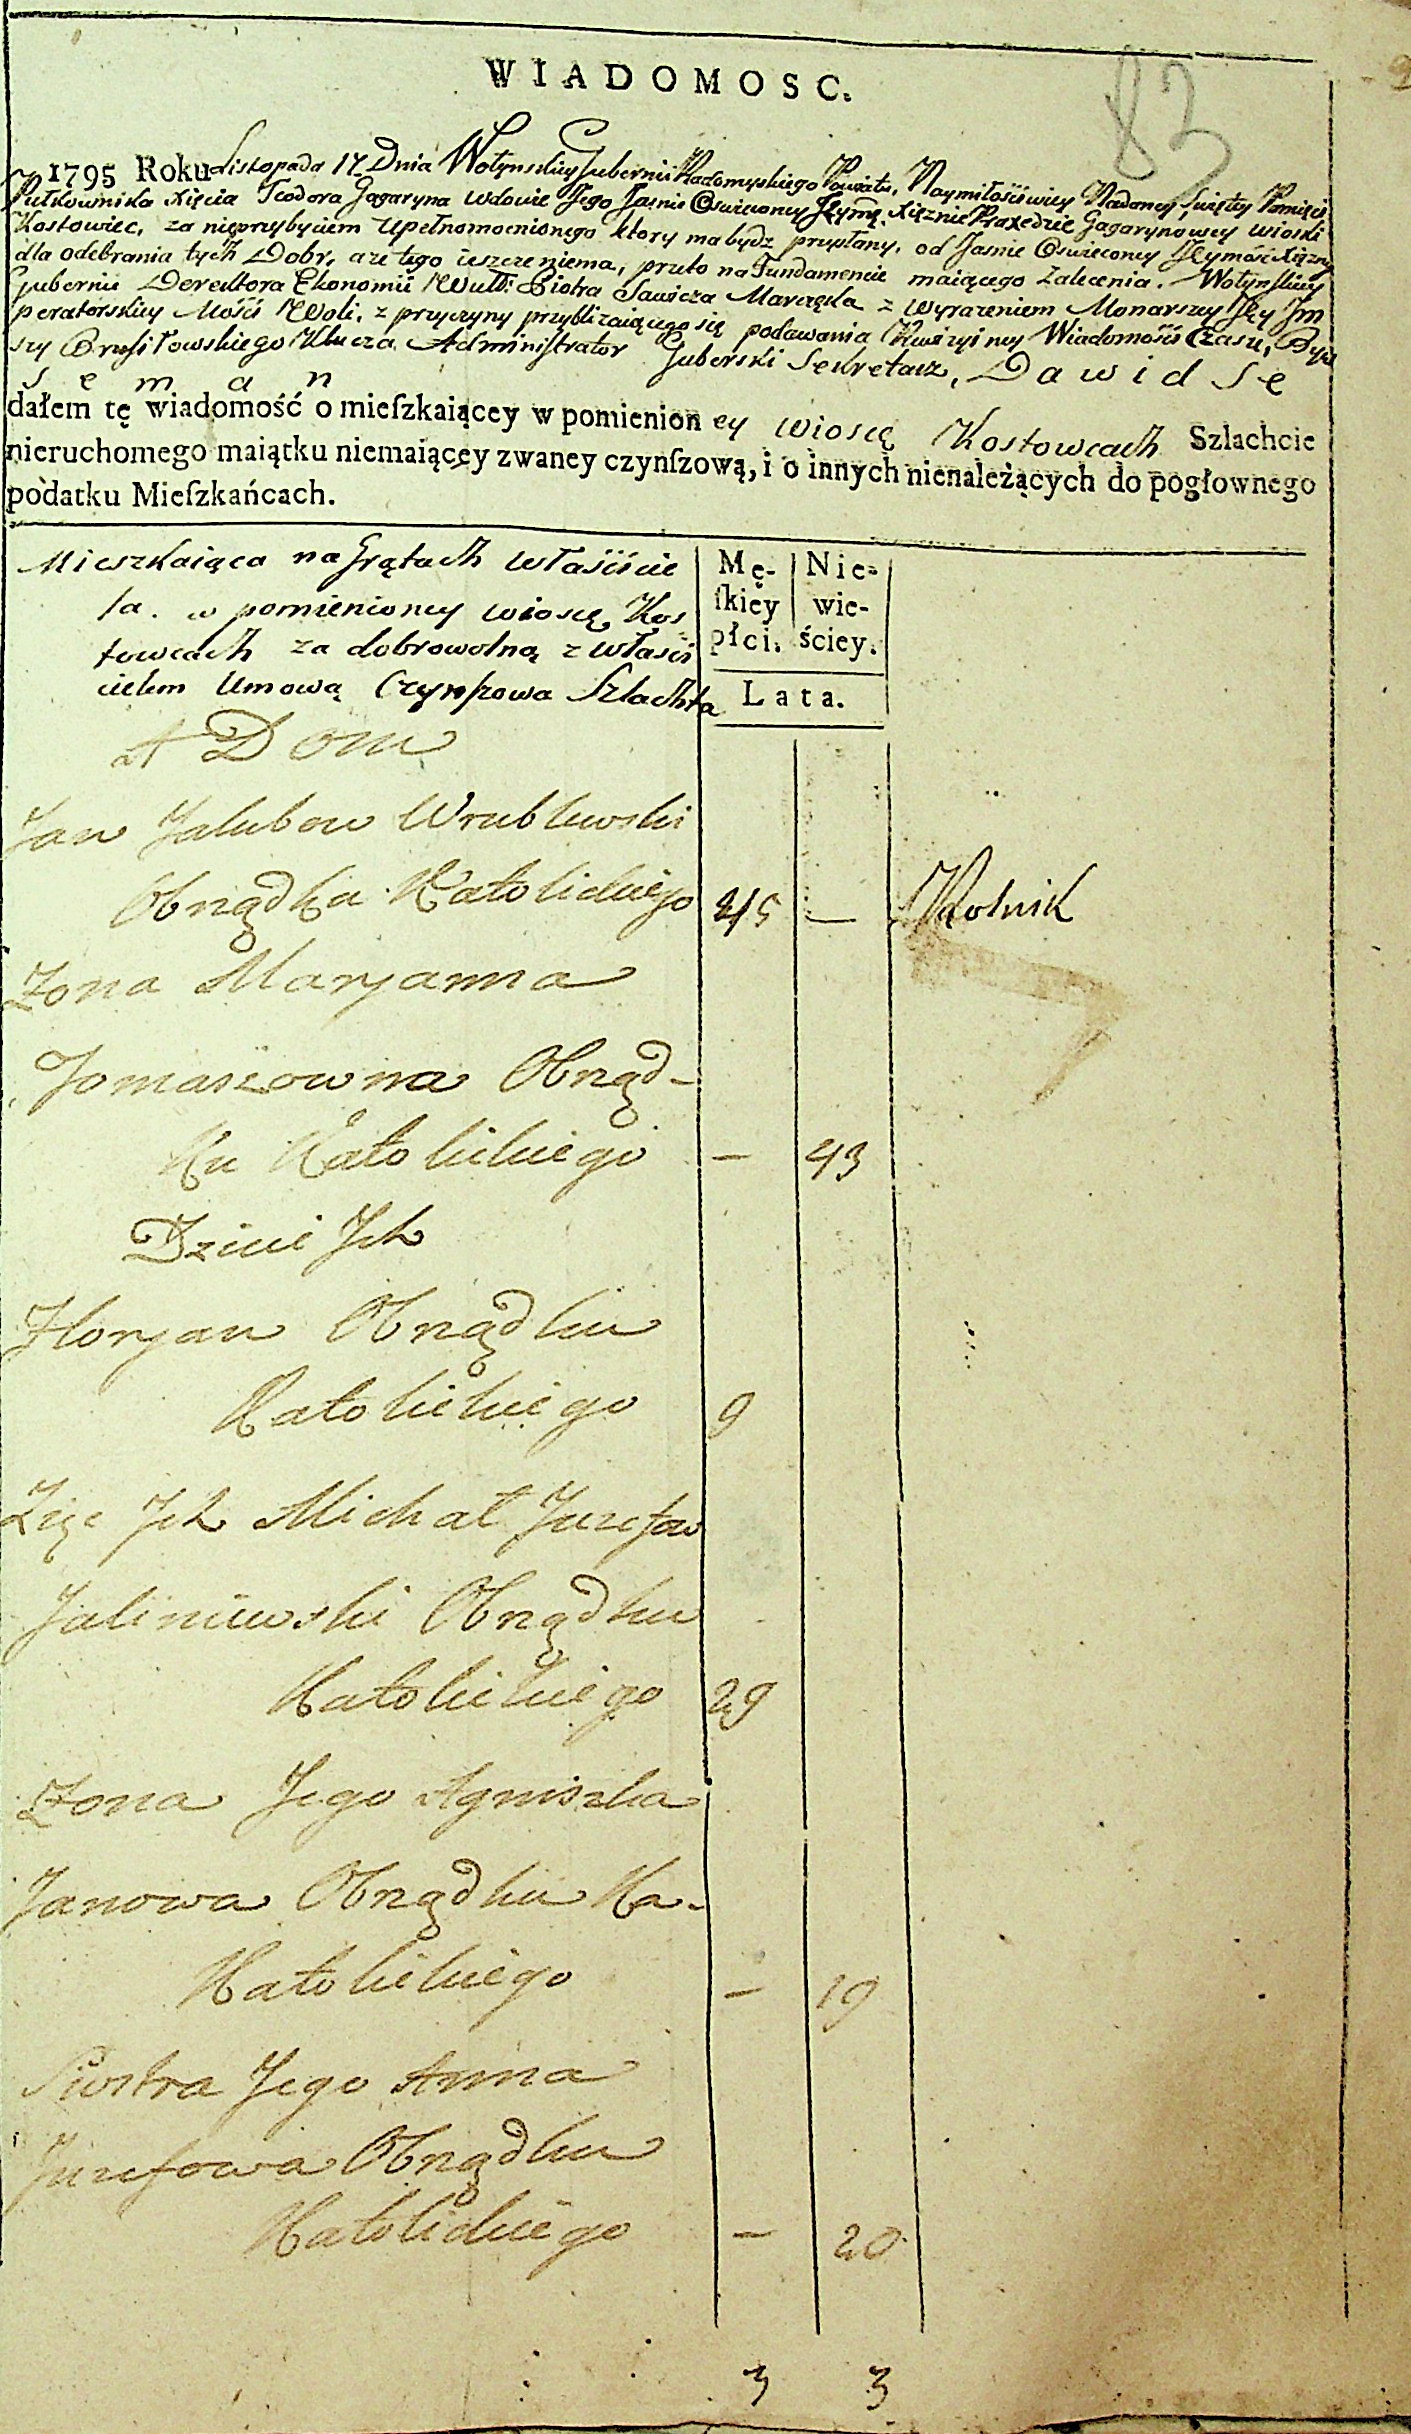 WIADOMOSC.
83
1795 Roku Listopada 17 Dnia Wołynskiey Gubernii Radomyskiego Powiatu, Naymiłościwiey Nadaney Swiętey Pamięci
Pułkownika Xięcia Teodora Gagaryna wdowie Jego Jasnie Oswieconey Xiężnie Praxedzie Gagarynowey wioski
Kostowiec, za nieprzybyciem Upełnomocnionego ktory ma bydz przysłany, od Jasnie Oswieconey
dla odebrania tych Dobr, a że tego ieszcze niema, przeto na Fundamencie maiącego Zalecenia. Wołynskiey
Gubernii Derektora Ekonomii Piotra Sawicza z wyrazeniem Monarszey Jey Jm
peratorskiey Mości Woli, z przyczyny przyblizaiącego się podawania Rewizyiney Wiadomości Czasu,
szy Brusiłowskiego Klucza Administrator Guberski Sekretarz, Dawid Se
man
dałem tę wiadomość o mieſzkaiącey w pomienion ey wioscę Kostowcach Szlachcie
nieruchomego maiątku niemaiącęy zwaney czynſzową, i o innych nienależących do pogłownego
podatku Mieſzkańcach.
Mieszkaiąca na Grątach właściicie
la. w pomienioney wioscę Kos
towcach za dobrowolną z właści
cielem Umową Czynszowa Szlachta
Mę-
ſkiey
płci.
Nie-
wie-
ściey.
Lata.
A Dom
Jan Jakubow Wrublewski
Obrządka Katolickiego 45 — Rolnik
Zona Maryanna
Tomaszowna Obrząd-
ku Katolickiego — 43
Dzieci Jch
Floryan Obrządku
Katolickiego 9
Zięc Jch Michał Juzefow
Jaliniewski Obrządku
Katolickiego 29
Zona Jego Agniszka
Janowa Obrządku Ka-
Katolickiego — 19
Siostra Jego Anna
Juzefowa Obrządku
Katolickiego — 20
3 3